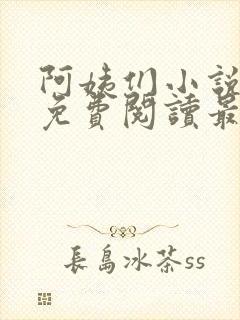 阿姨们小說
免費閱讀最
長島冰茶ss